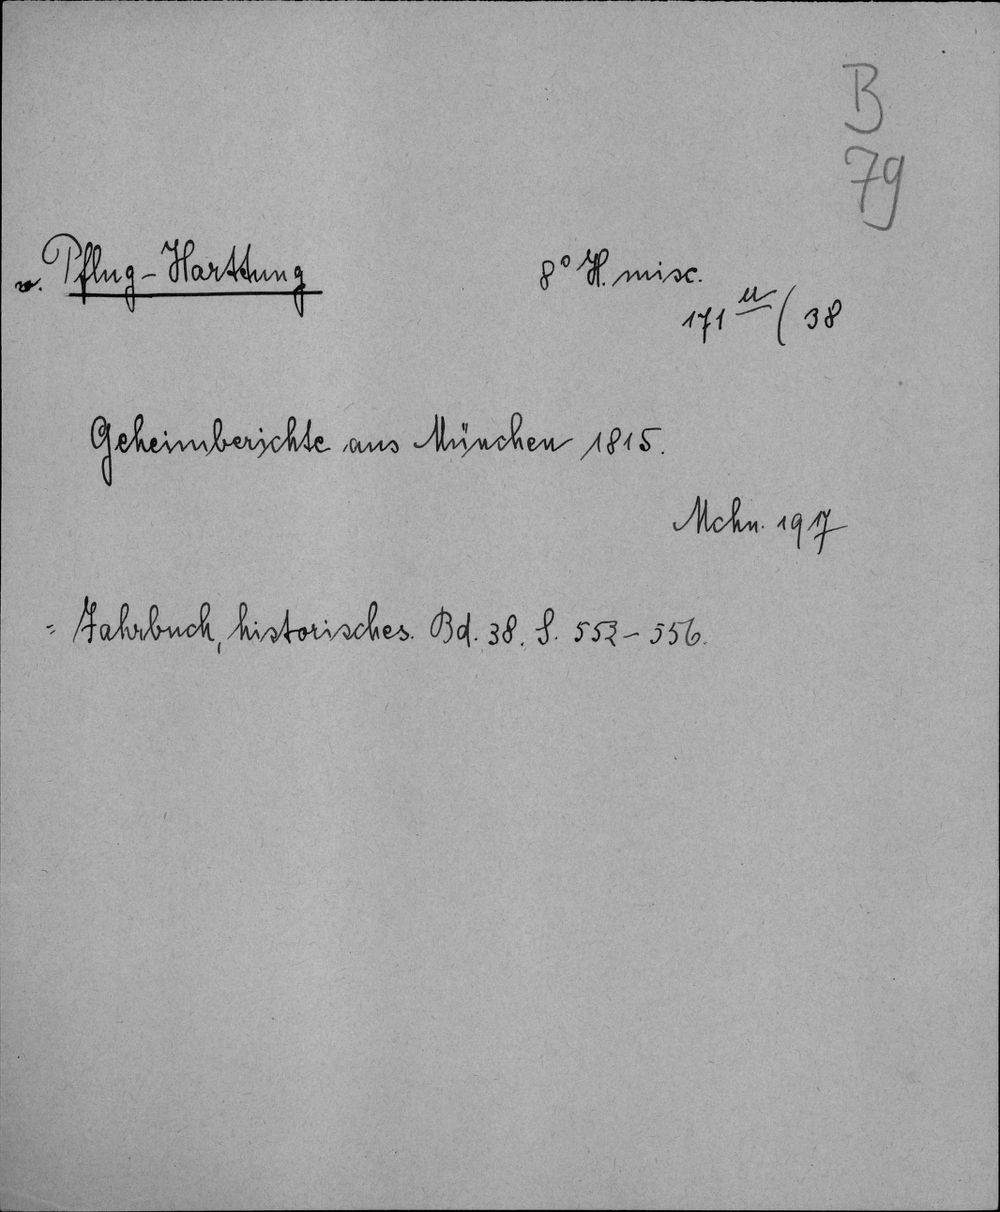 B
79
v. Pflug-Harttung
8° H. misc.
171 u ( 38
Geheimberichte aus München 1815.
Mchn. 1917
= Jahrbuch, historisches. Bd. 38. S. 552-556.